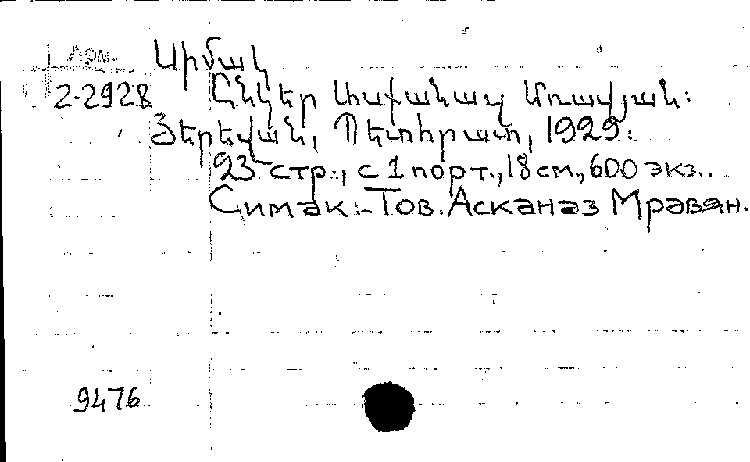 Арм.
Սիմակ
2-2928 Ընկեր Ասքանազ Մռավյան:
Յերեվան, Պետհրատ, 1929:
23 стр., с 1 порт., 18 см., 600 экз..
Симак.–Тов. Асканаз Мравян.
9476